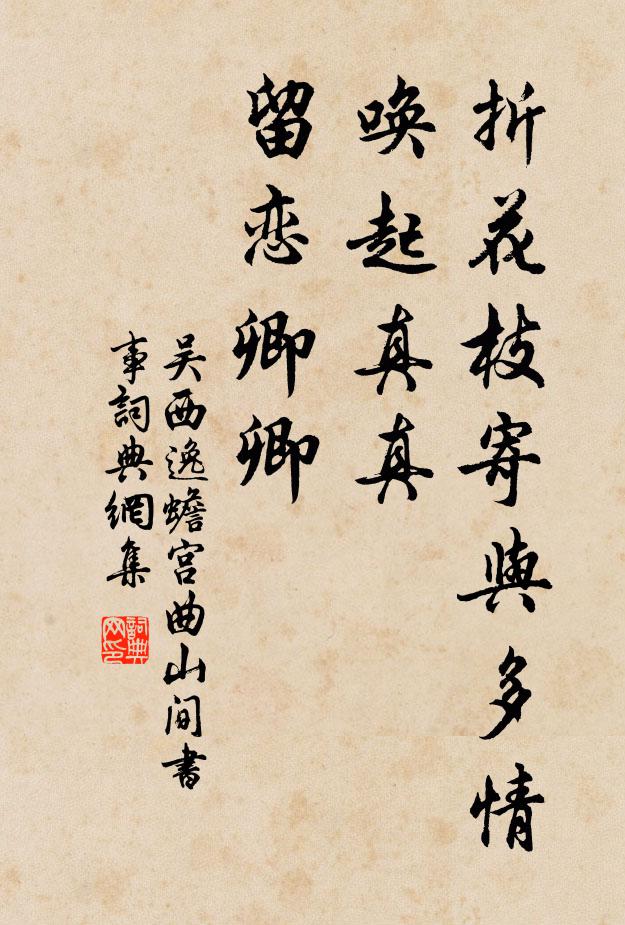 折花枝寄與多情
喚起真真
留恋卿卿
吴西逸蟾宫曲山间書
事詞典網集
詞典网印